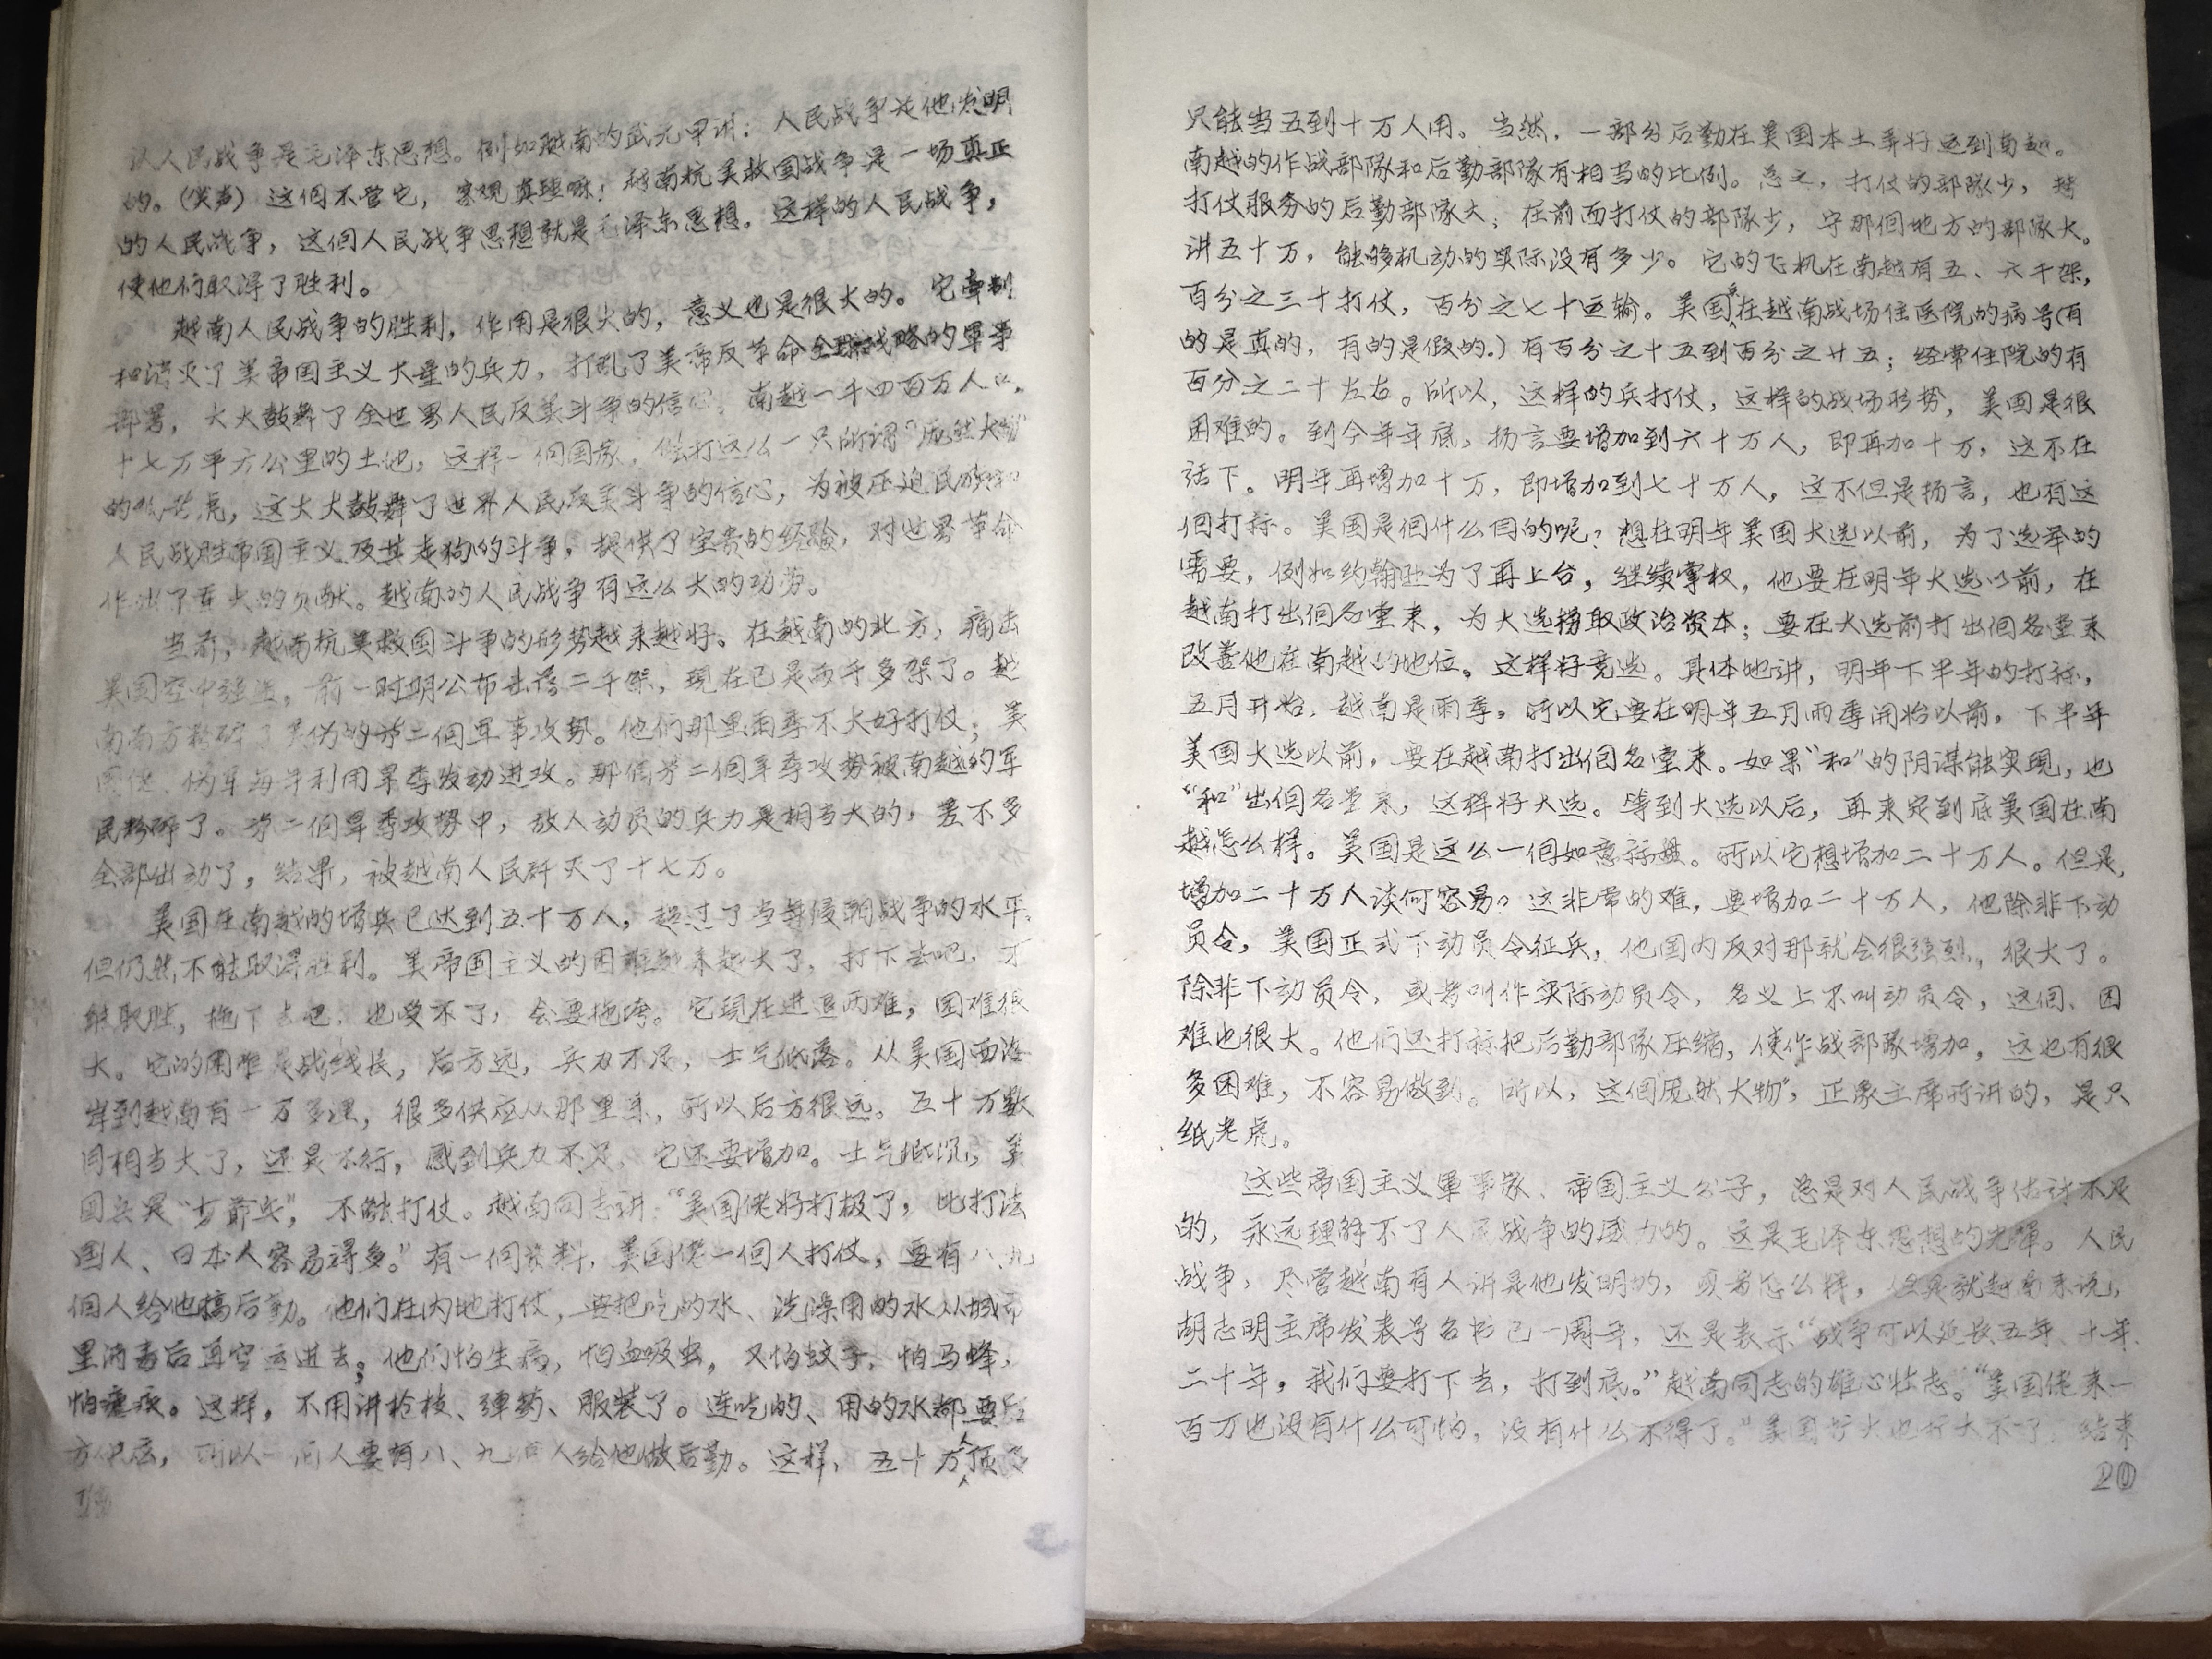 认人民战争是毛泽东思想。例如越南的武元甲讲：人民战争是他发明
的。（笑声）这个不管它，客观真理嘛！越南抗美救国战争是一场真正
的人民战争，这个人民战争思想就是毛泽东思想。这样的人民战争，
使他们取得了胜利。
越南人民战争的胜利，作用是很大的，意义也是很大的。它牵制
和消灭了美帝国主义大量的兵力，打乱了美帝反革命全球战略的军事
部署，大大鼓舞了全世界人民反美斗争的信心。南越一千四百万人口，
十七万平方公里的土地，这样一个国家，能打这么一只所谓“庞然大物”
的纸老虎，这大大鼓舞了世界人民反美斗争的信心，为被压迫民族和
人民战胜帝国主义及其走狗的斗争，提供了宝贵的经验，对世界革命
作出了重大的贡献。越南的人民战争有这么大的功劳。
当前，越南抗美救国斗争的形势越来越好。在越南的北方，痛击
美国空中强盗，前一时期公布击落二千架，现在已是两千多架了。越
南南方粉碎了美伪的第二个军事攻势。他们那里雨季不大好打仗；美
国佬、伪军每年利用旱季发动进攻。那个第二个旱季攻势被南越的军
民粉碎了。第二个旱季攻势中，敌人动员的兵力是相当大的，差不多
全部出动了，结果，被越南人民歼灭了十七万。
美国在南越的增兵已达到五十万人，超过了当年侵朝战争的水平。
但仍然不能取得胜利。美帝国主义的困难越来越大了，打下去吧，不
能取胜，拖下去吧，也受不了，会要拖垮。它现在进退两难，困难很
大。它的困难是战线长，后方远，兵力不足，士气低落。从美国西海
岸到越南有一万多浬，很多供应从那里来，所以后方很远。五十万数
目相当大了，还是不行，感到兵力不足，它还要增加。士气低沉，美
国兵是“少爷兵”，不能打仗。越南同志讲：“美国佬好打极了，比打法
国人、日本人容易得多。”有一个资料，美国佬一个人打仗，要有八、九
个人给他搞后勤。他们在内地打仗，要把吃的水、洗澡用的水从城市
里消毒后再空运进去；他们怕生病，怕血吸虫，又怕蚊子，怕马蜂，
怕疟疾。这样，不用讲枪枝、弹药、服装了。连吃的、用的水都要后
方供应，所以一个人要有八、九个人给他做后勤。这样，五十万人顶多
只能当五到十万人用。当然，一部分后勤在美国本土弄好送到南越。
南越的作战部队和后勤部队有相当的比例。总之，打仗的部队少，替
打仗服务的后勤部队大；在前面打仗的部队少，守那个地方的部队大。
讲五十万，能够机动的实际没有多少。它的飞机在南越有五、六千架，
百分之三十打仗，百分之七十运输。美国兵在越南战场住医院的病号（有
的是真的，有的是假的。）有百分之十五到百分之廿五；经常住院的有
百分之二十左右。所以，这样的兵打仗，这样的战场形势，美国是很
困难的。到今年年底，扬言要增加到六十万人，即再加十万，这不在
话下。明年再增加十万，即增加到七十万人，这不但是扬言，也有这
个打标。美国是个什么目的呢？想在明年美国大选以前，为了选举的
需要，例如约翰逊为了再上台，继续掌权，他要在明年大选以前，在
越南打出个名堂来，为大选捞取政治资本；要在大选前打出个名堂来
改善他在南越的地位。这样好竞选。具体地讲，明年下半年的打标，
五月开始，越南是雨季，所以它要在明年五月雨季开始以前，下半年
美国大选以前，要在越南打出个名堂来。如果“和”的阴谋能实现，也
“和”出个名堂来，这样好大选。等到大选以后，再来定到底美国在南
越怎么样。美国是这么一个如意标盘。所以它想增加二十万人。但是，
增加二十万人谈何容易？这非常的难，要增加二十万人，他除非下动
员令，美国正式下动员令征兵，他国内反对那就会很强烈，很大了。
除非下动员令，或者叫作实际动员令，名义上不叫动员令，这个、困
难也很大。他们还打标把后勤部队压缩，使作战部队增加，这也有很
多困难，不容易做到。所以，这个“庞然大物”，正象主席所讲的，是只
纸老虎。
这些帝国主义軍事家、帝国主义公子，总是对人民战争估计不足
的，永远理解不了人民战争的威力的。这是毛泽东思想的光辉。人民
战争，尽管越南有人讲是他发明的，或者怎么样，但是就越南来说，
胡志明主席发表号召书已一周年，还是表示“战争可以延长五年、十年、
二十年，我们要打下去，打到底。”越南同志的雄心壮志。“美国佬来一
百万也没有什么可怕，没有什么不得了。”美国扩大也扩大不了，结束
20